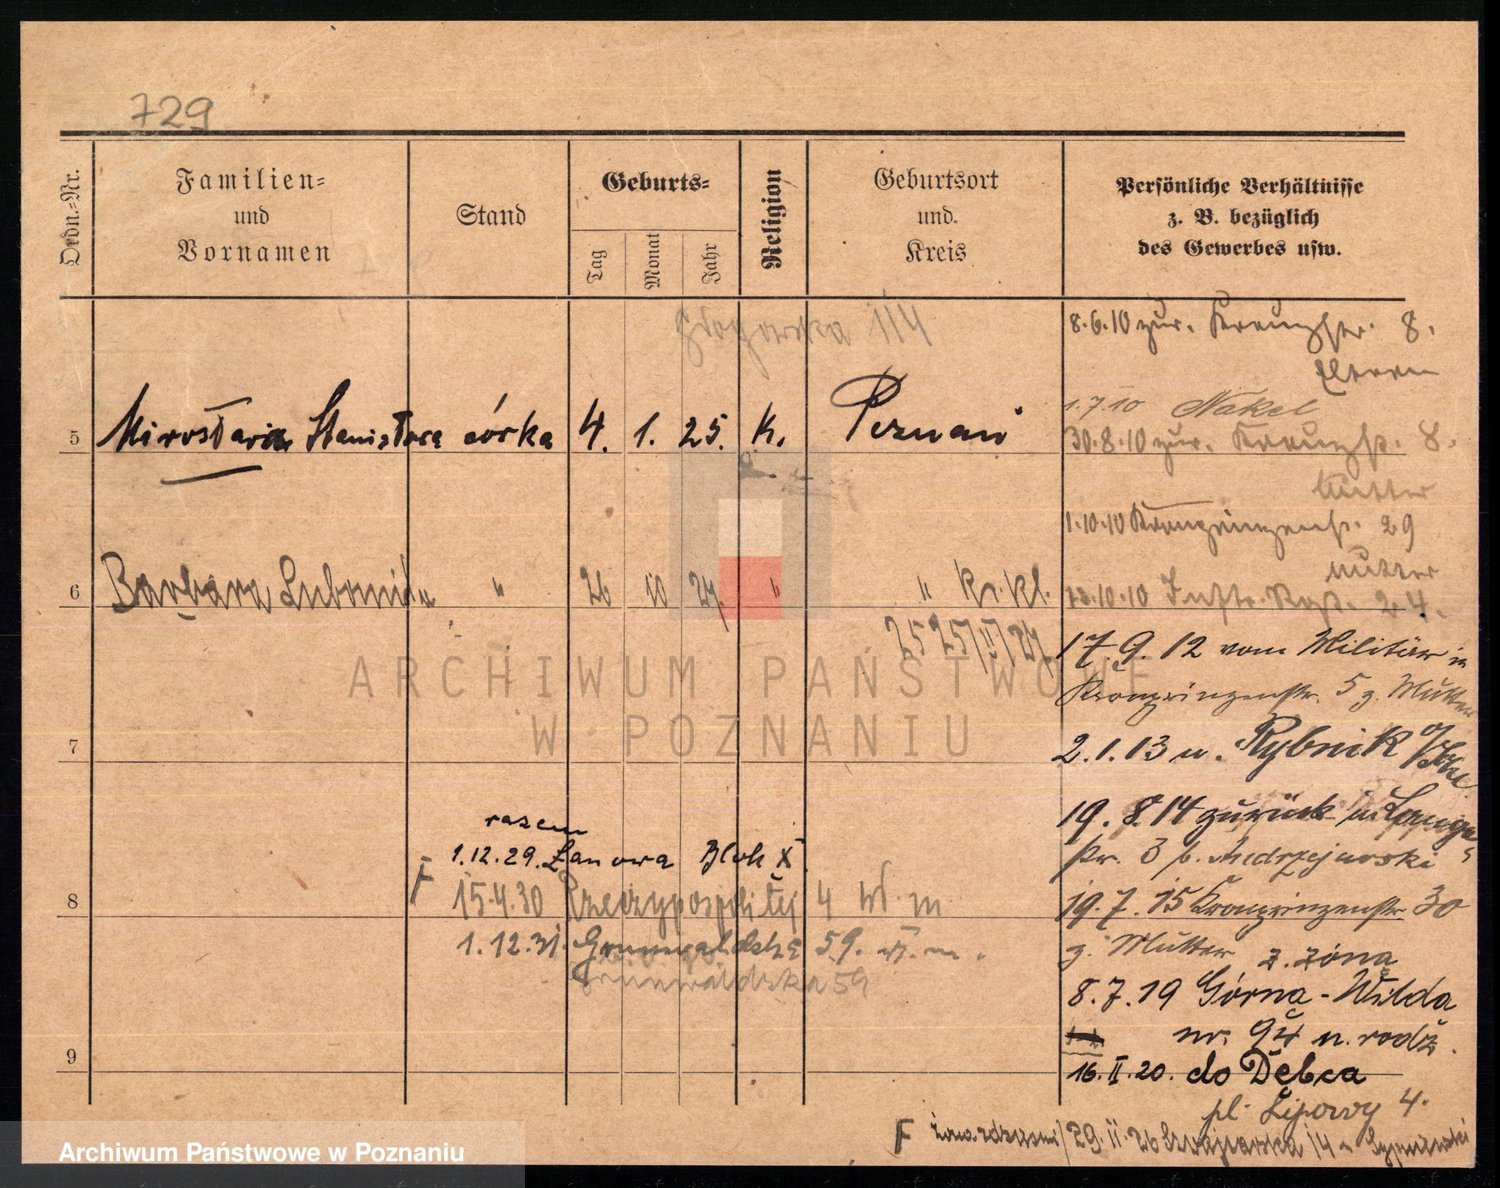 729
Ordn.=Nr.
Familien=
und
Vornamen
Stand
Geburts=
Tag
Monat
Jahr
Religion
Geburtsort
und.
Kreis
Persönliche Verhältnisse
z. B. bezüglich
des Gewerbes usw.
114
8.6.10 zur. Kreuzstr. 8.
Eltern
1.7.10 Nakel
5 Mirosława Stanisława córka 4. 1. 25. K. Poznań
30.8.10 zur. Kreuzstr. 8.
Mutter
1.10.10 Kronprinzenstr. 29
Mutter
6 Barbara " 26 10 27. " "
.10.10 24.
25
17.9.12 vom Militär in
Kronprinzenstr. 5 z. Mutter
7
2.1.13 n. Rybnik
19.8.14 zurück in
str. 3 b. Andrzejewski
razem
1.12.29. Łanowa Blok X
8
F 15.4.30 Rzeczypospolitej 4 W. m
19.7.15 Kronprinzenstr 30
z. Mutter z. żoną
1.12.31. Grunwaldzka 59. w. m.
Grunwaldzka 59
8.7.19 Górna-Wilda
nr. 94 n. rodz.
9
16.II.20. do Dębca
pl. Lipowy 4.
F 29.II.26 14
ARCHIWUM PAŃSTWOWE
W POZNANIU
Archiwum Państwowe w Poznaniu